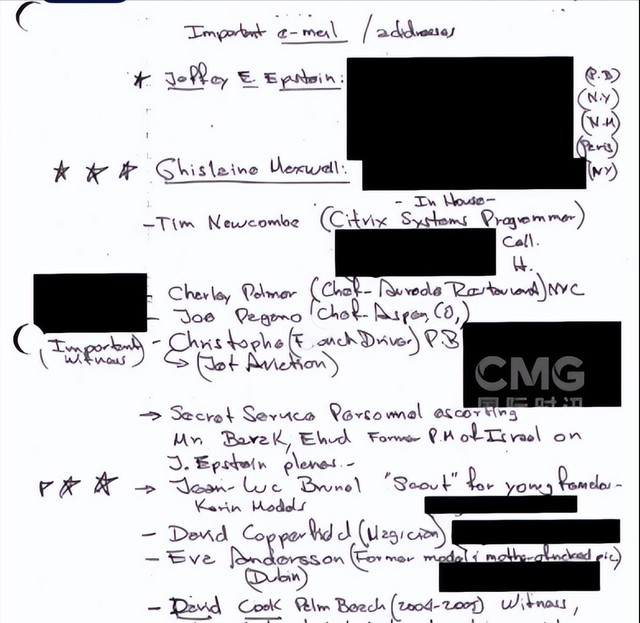 Important e-mail / addresses
* Jeffey E Epstein:
(P.B)
(N.Y)
(N.M
(Paris)
*** Ghislaine Maxwell:
(NY)
- In House -
- Tim Newcombe (Citrix Systems Programmer)
Cell.
H.
- Charley Palmer (Chef-Aureole Restaurant) NYC
- Joe Pagano (Chef-Aspen CO,)
(Important Witness) - Christophe (F ench Driver) P.B
→ (Jet Aviction)
CMG
国际时讯
→ Secret Service Personnel escorting
Mr. Barak, Ehud Former P.M of Israel on
J. Epstein planes.-
** → Jean-Luc Brunel "Scout" for young females-
Karin Models
- David Copperfield (Magician)
- Eva Anderssson (Former model & mother of naked pic)
(Dubin)
- David Cook Palm Beach (2004-2005) Witness,